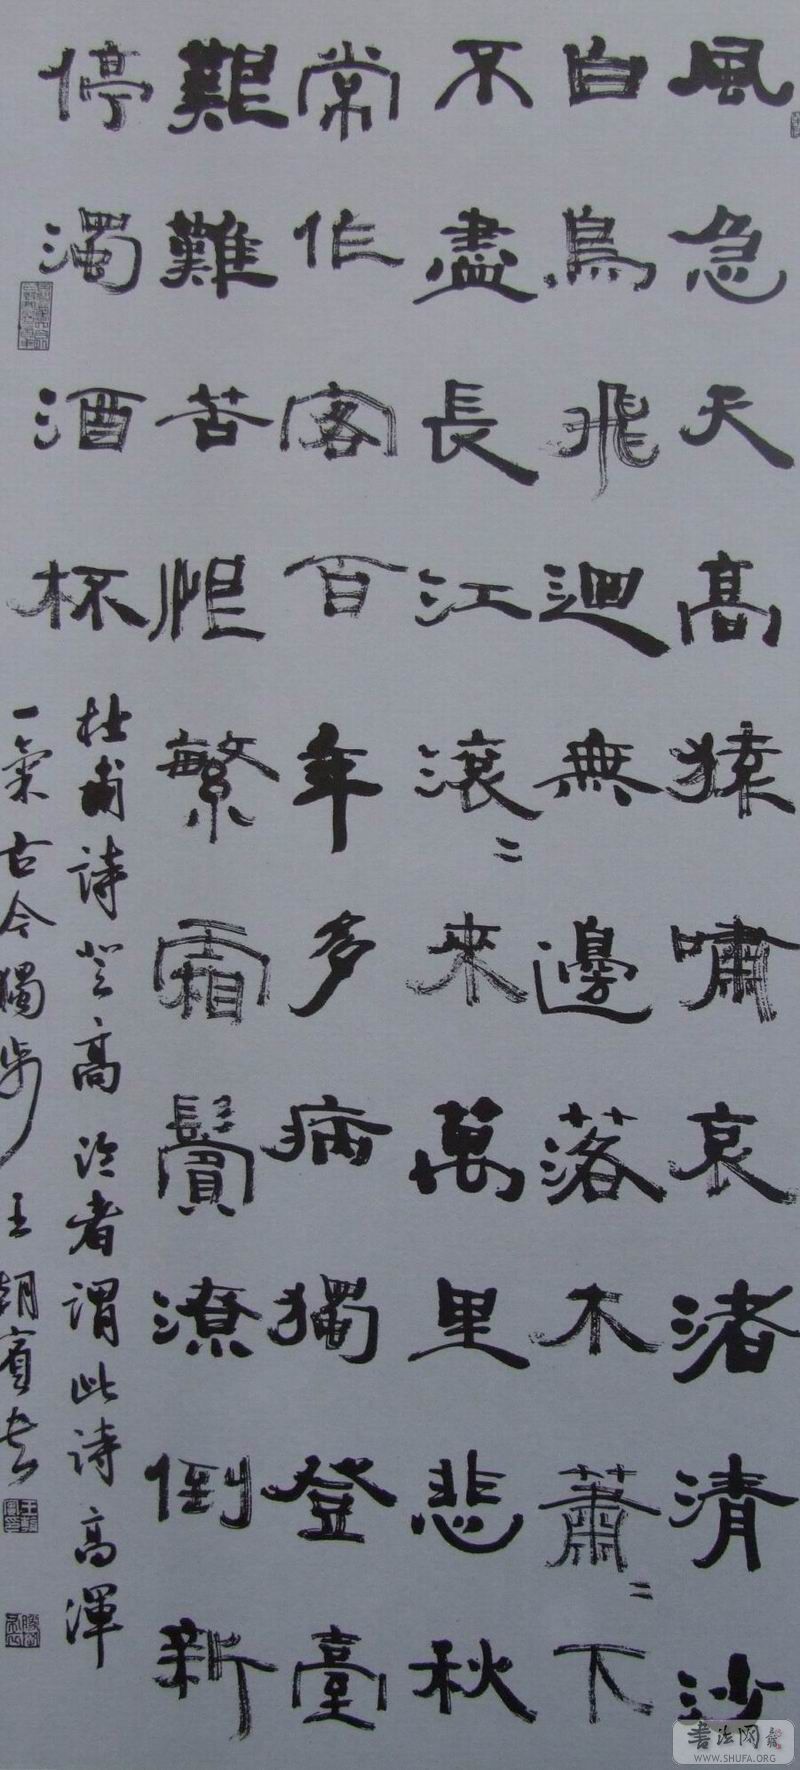 風急天高猿嘯哀渚清沙
白鳥飛迴無邊落木蕭〻下
不盡長江滾〻來萬里悲秋
常作客百年多病獨登臺
艱難苦恨繁霜鬢潦倒新
停濁酒杯
杜甫詩登高論者謂此詩高渾
一氣古今獨步王朝賓書
書法网
WWW.SHUFA.ORG